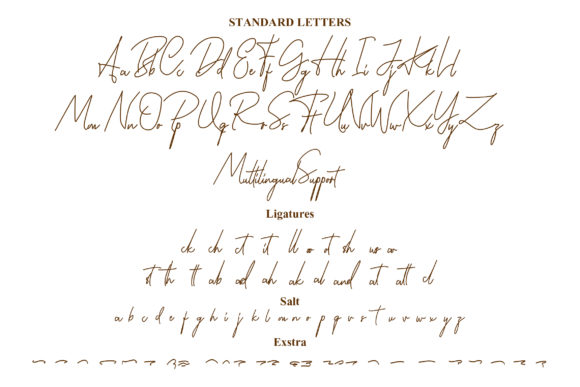 STANDARD LETTERS
Aa Bb Cc Dd Ee Ff Gg Hh Ii Jj Kk Ll
Mm Nn Oo Pp Qq Rr Ss Tt Uu Vv Ww Xx Yy Zz
Multilingual Support
Ligatures
ck ch ct it ll ot sh us
st th tt ab ad ah ak al and at att cl
Salt
a b c d e f g h i j k l m n o p q r s t u v w x y z
Exstra